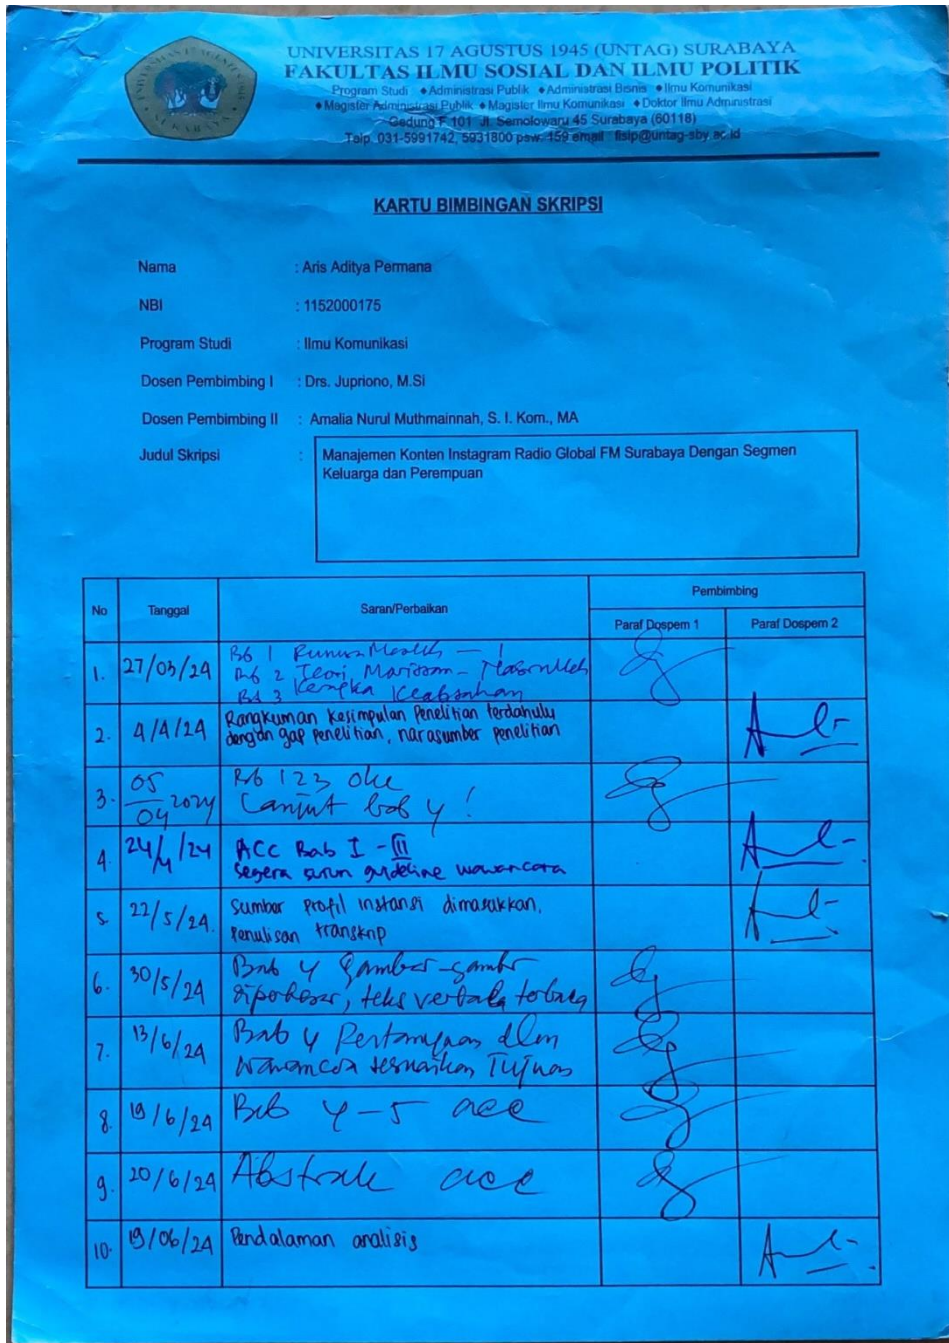 UNIVERSITAS 17 AGUSTUS 1945 (UNTAG) SURABAYA
FAKULTAS ILMU SOSIAL DAN ILMU POLITIK
Program Studi ♦Administrasi Publik ♦Administrasi Bisnis ♦Ilmu Komunikasi
♦Magister Administrasi Publik ♦Magister Ilmu Komunikasi ♦Doktor Ilmu Administrasi
Gedung F 101 Jl. Semolowaru 45 Surabaya (60118)
Telp. 031-5991742, 5931800 psw. 159 email : fisip@untag-sby.ac.id
KARTU BIMBINGAN SKRIPSI
Nama : Aris Aditya Permana
NBI : 1152000175
Program Studi : Ilmu Komunikasi
Dosen Pembimbing I : Drs. Jupriono, M.Si
Dosen Pembimbing II : Amalia Nurul Muthmainnah, S. I. Kom., MA
Judul Skripsi : Manajemen Konten Instagram Radio Global FM Surabaya Dengan Segmen
Keluarga dan Perempuan
No Tanggal Saran/Perbaikan Pembimbing
Paraf Dospem 1 Paraf Dospem 2
1. 27/03/24 Bab 1
Bab 2 Teori
Bab 3 Kerangka Keabsahan
2. 4/4/24 Rangkuman kesimpulan Penelitian terdahulu
dengan gap penelitian, narasumber penelitian
3. 05/04 2024 Bab 1 2 3 oke
Lanjut bab 4!
4. 24/4/24 ACC Bab I - III
Segera susun guideline wawancara
5. 22/5/24. Sumber profil instansi dimasukkan,
Penulisan transkrip
6. 30/5/24 Bab 4 gambar-gambar
diperbesar, teks verbal terbaca
7. 13/6/24 Bab 4 Pertanyaan dlm
wawancara sesuaikan Tujuan
8. 19/6/24 Bab 4-5 acc
9. 20/6/24 Abstrak acc
10. 19/06/24 Pendalaman analisis